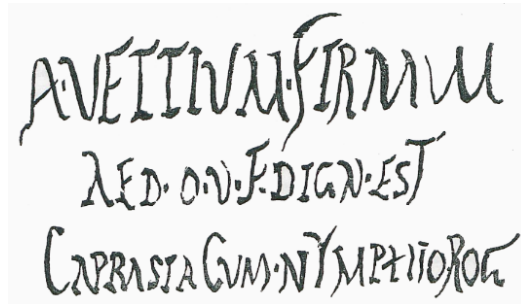 A·VETTIVM·FIRMVM
AED·O·V·F·DIGN·EST
CAPRASIA CVM·NYMPHIO ROG